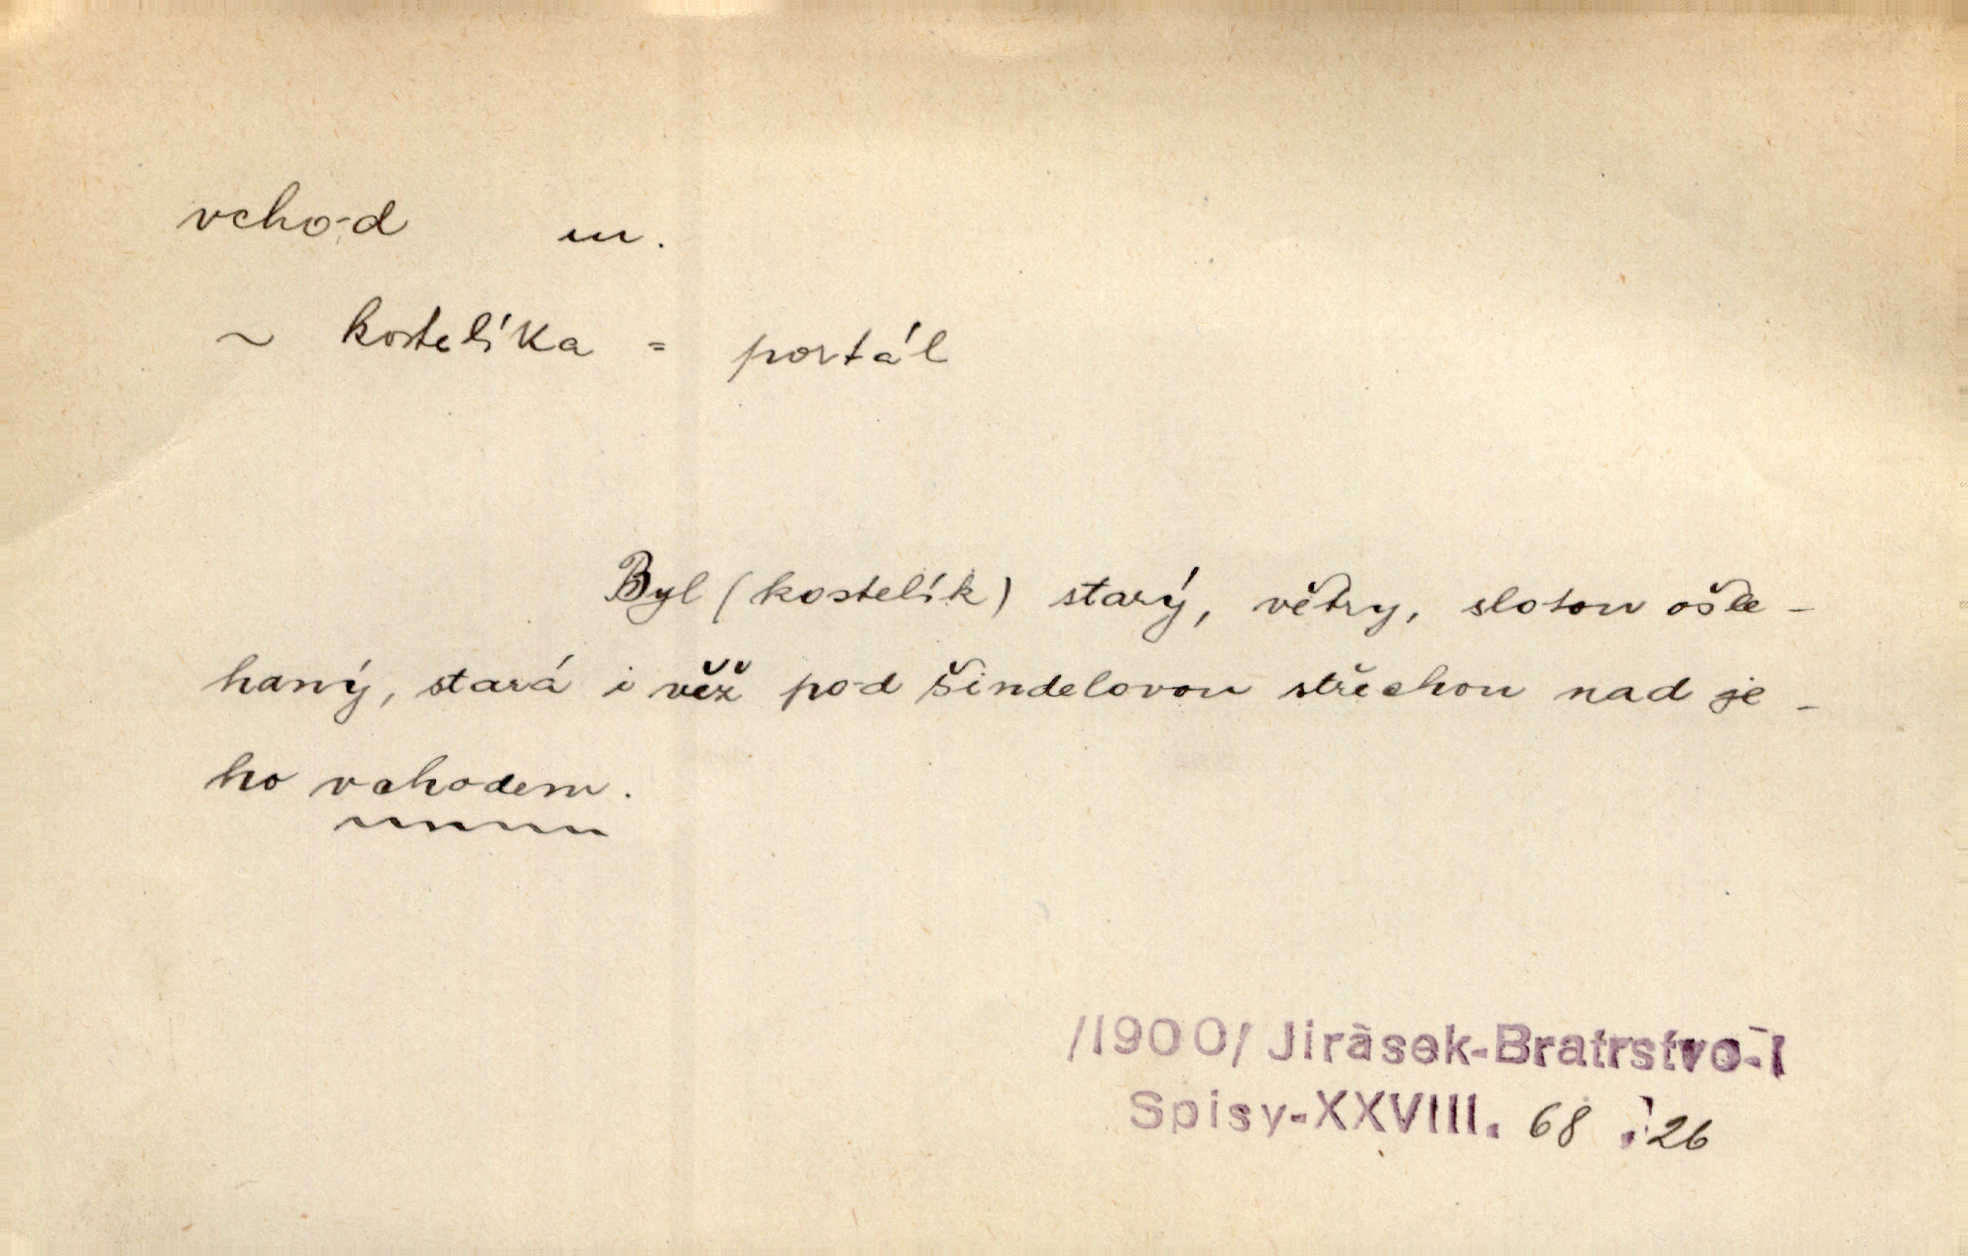 vchod m.
~ kostelíka = portál
Byl (kostelík) starý, větry, slotou ošle-
haný, stará i věž pod šindelovou střechou nad je-
ho vchodem.
/1900/ Jirásek-Bratrstvo-I
Spisy-XXVIII. 68 : 26